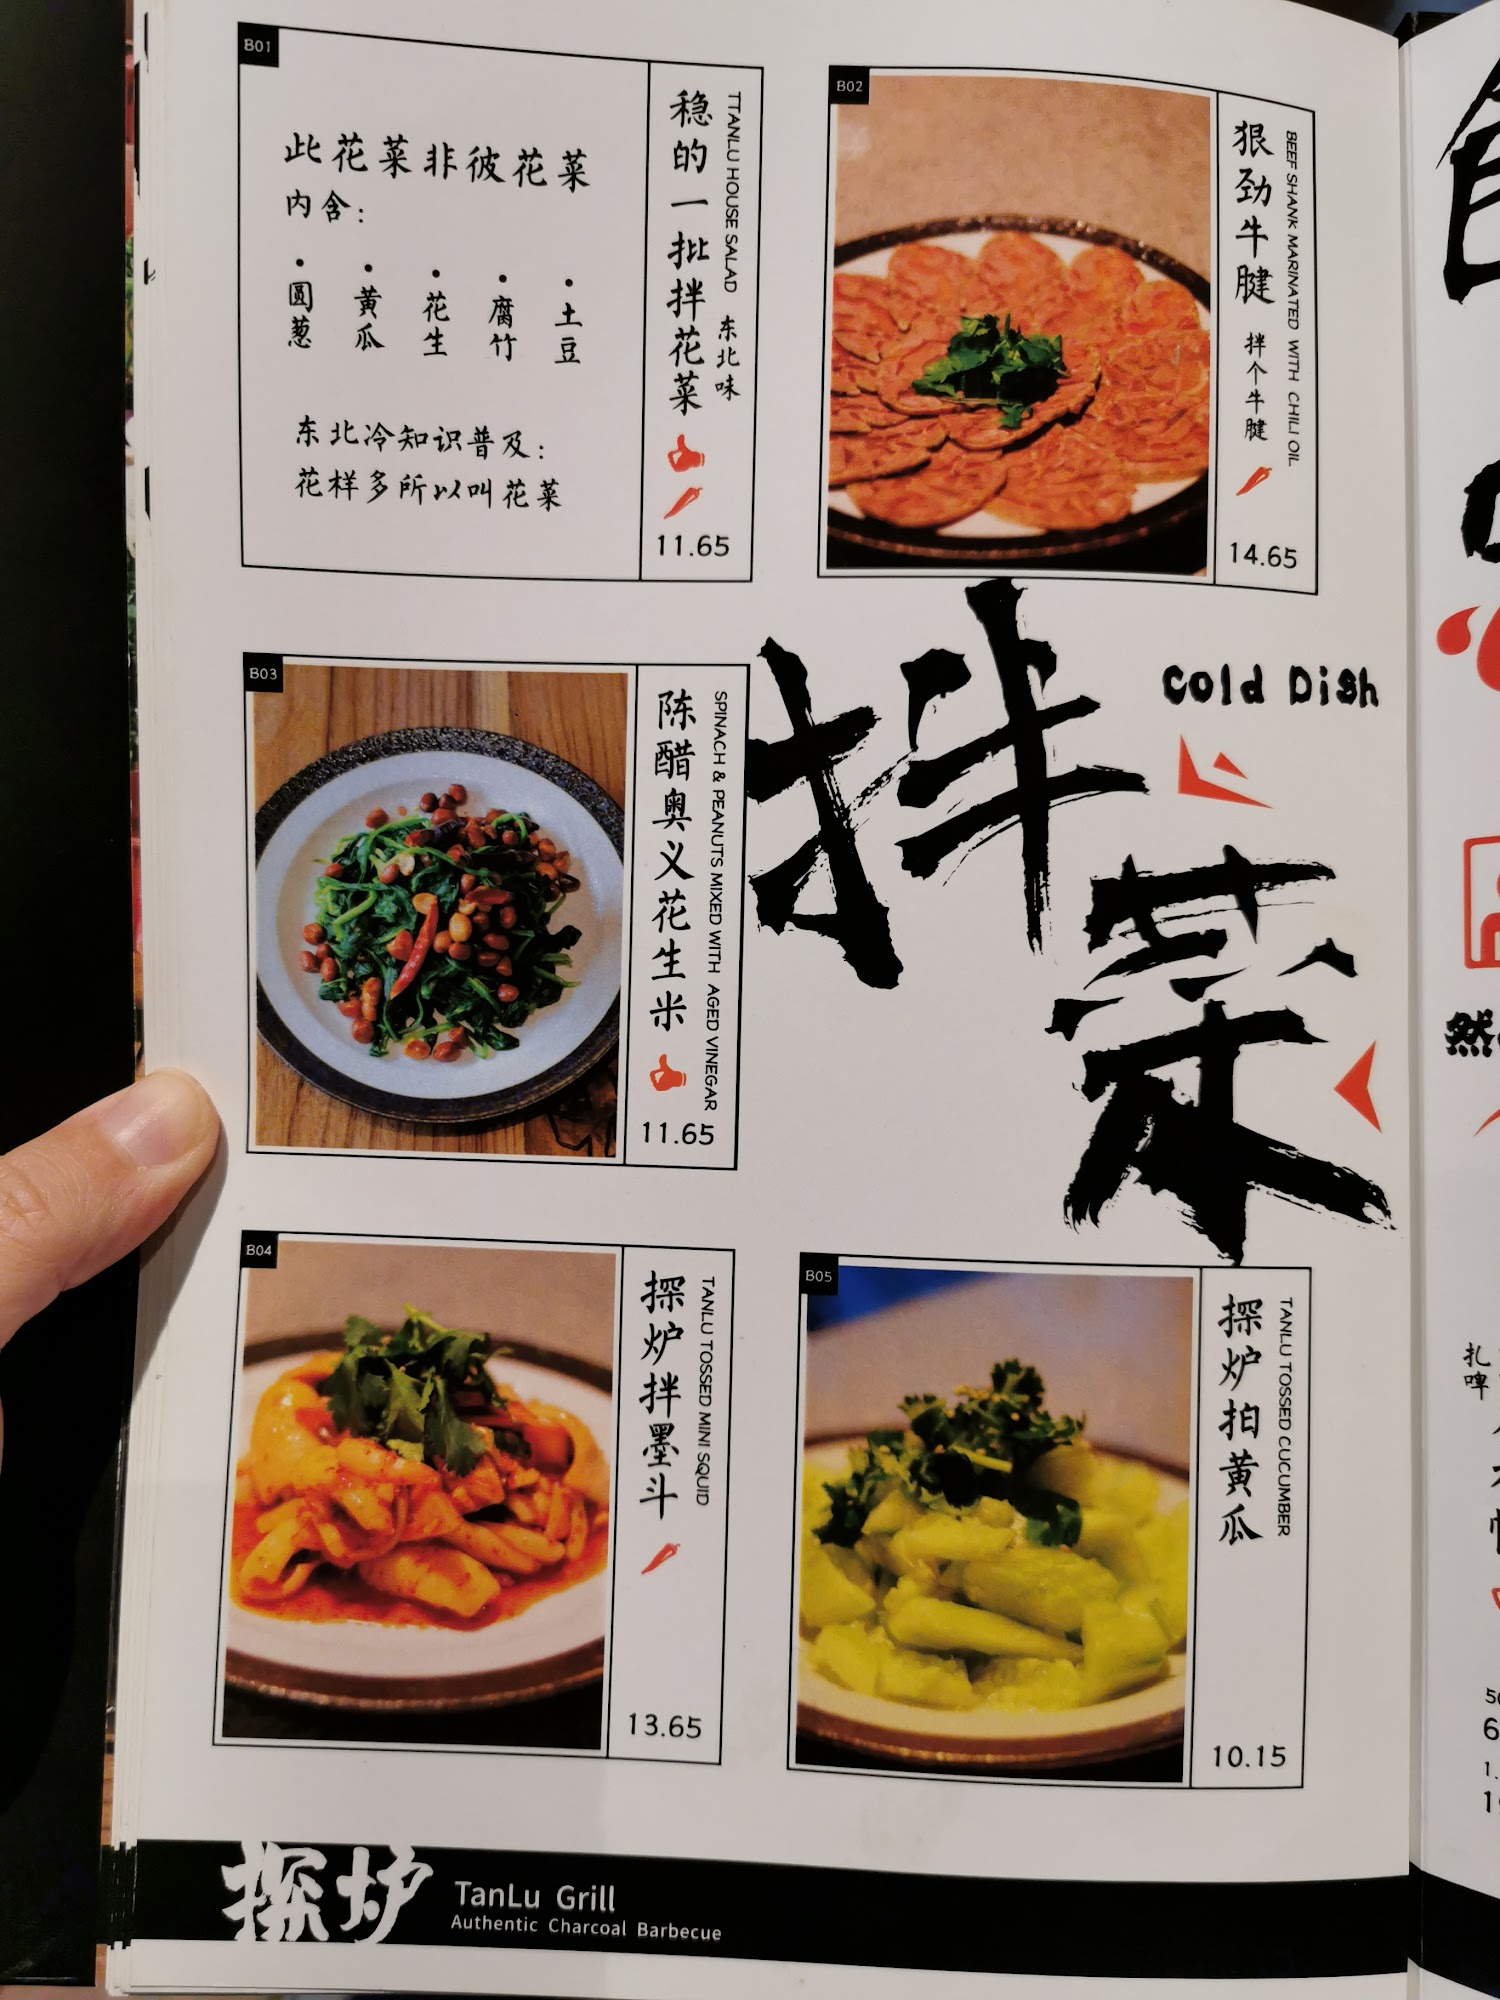 B01
此花菜非彼花菜
内含:
• 圆葱
• 黄瓜
• 花生
• 腐竹
• 土豆
东北冷知识普及:
花样多所以叫花菜
稳的一批拌花菜
TTANLU HOUSE SALAD 东北味
11.65
B02
狠劲牛腱 拌个牛腱
BEEF SHANK MARINATED WITH CHILI OIL
14.65
拌菜
Cold Dish
B03
陈醋奥义花生米
SPINACH & PEANUTS MIXED WITH AGED VINEGAR
11.65
B04
探炉拌墨斗
TANLU TOSSED MINI SQUID
13.65
B05
探炉拍黄瓜
TANLU TOSSED CUCUMBER
10.15
探炉
TanLu Grill
Authentic Charcoal Barbecue
然
扎啤